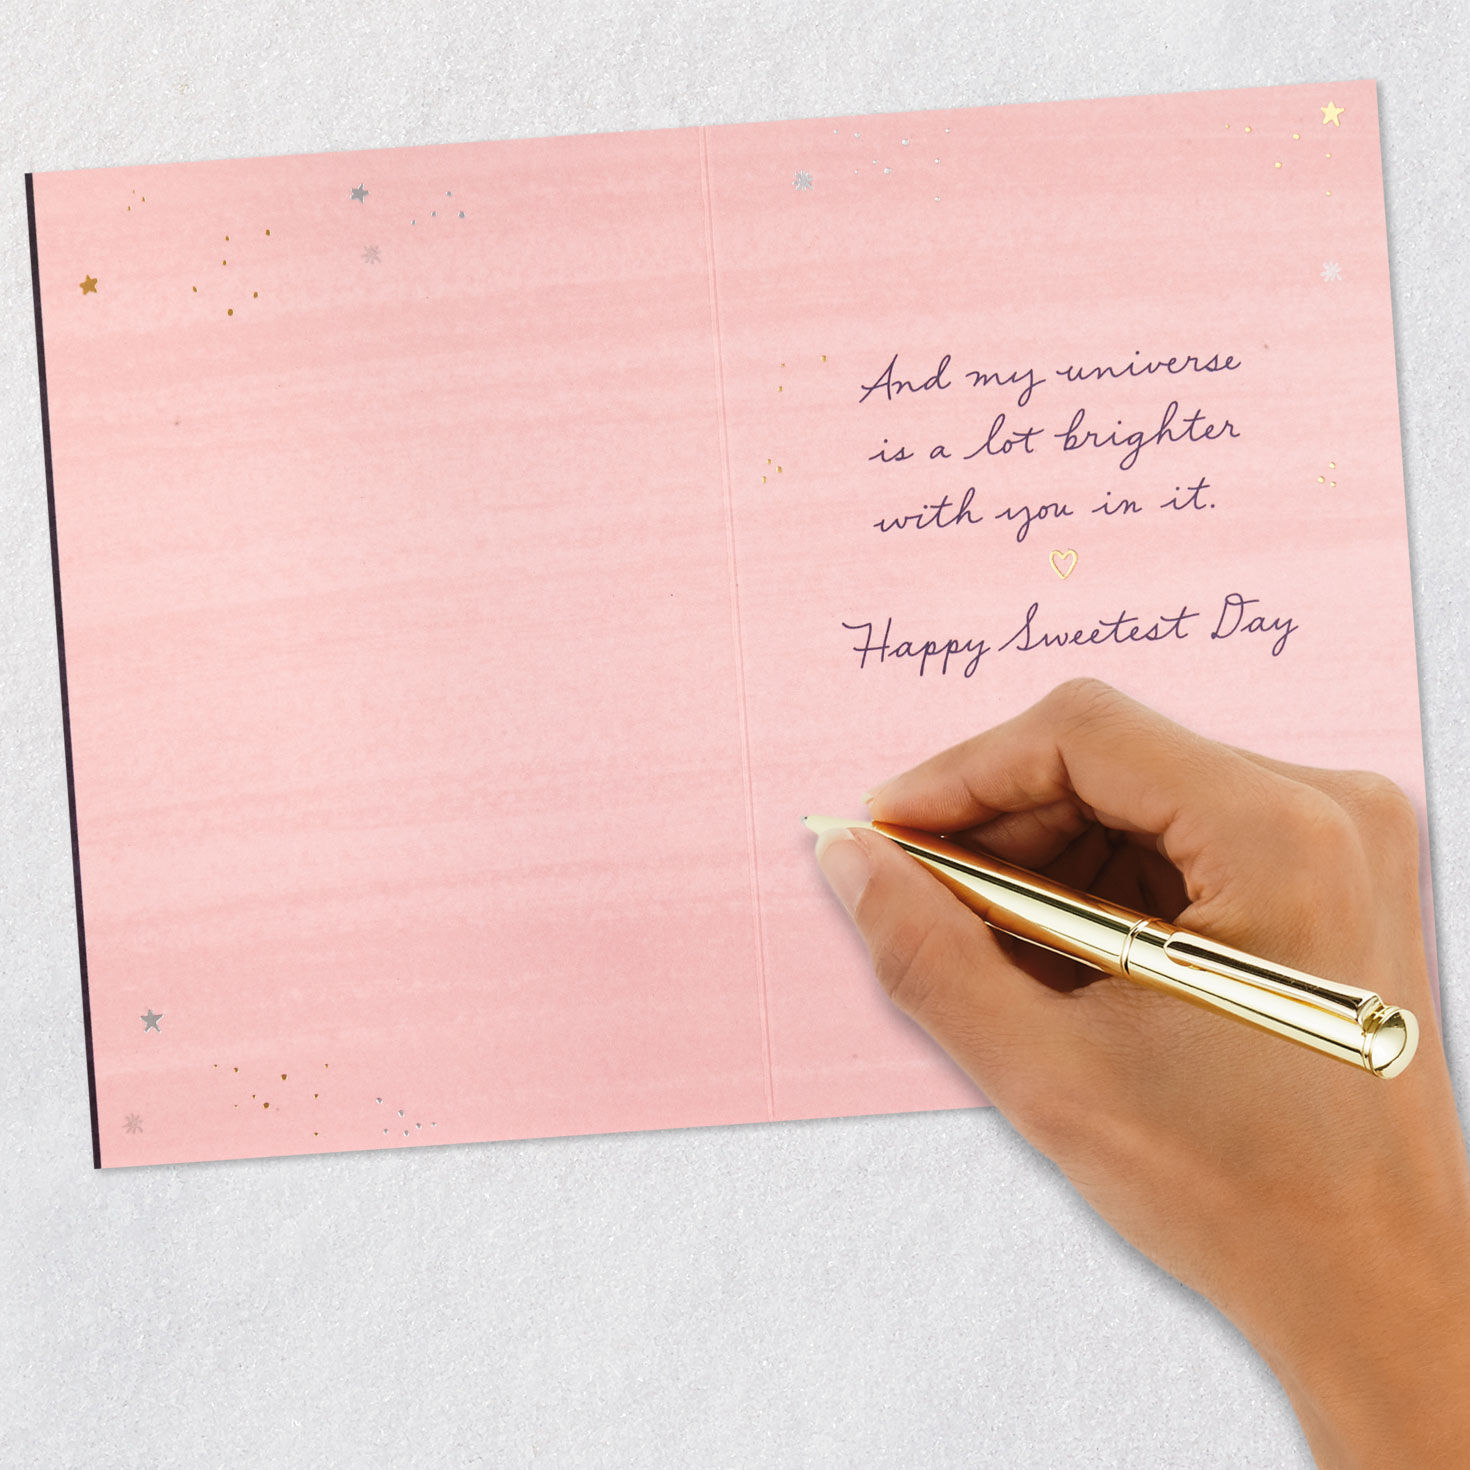 And my universe
is a lot brighter
with you in it.
Happy Sweetest Day